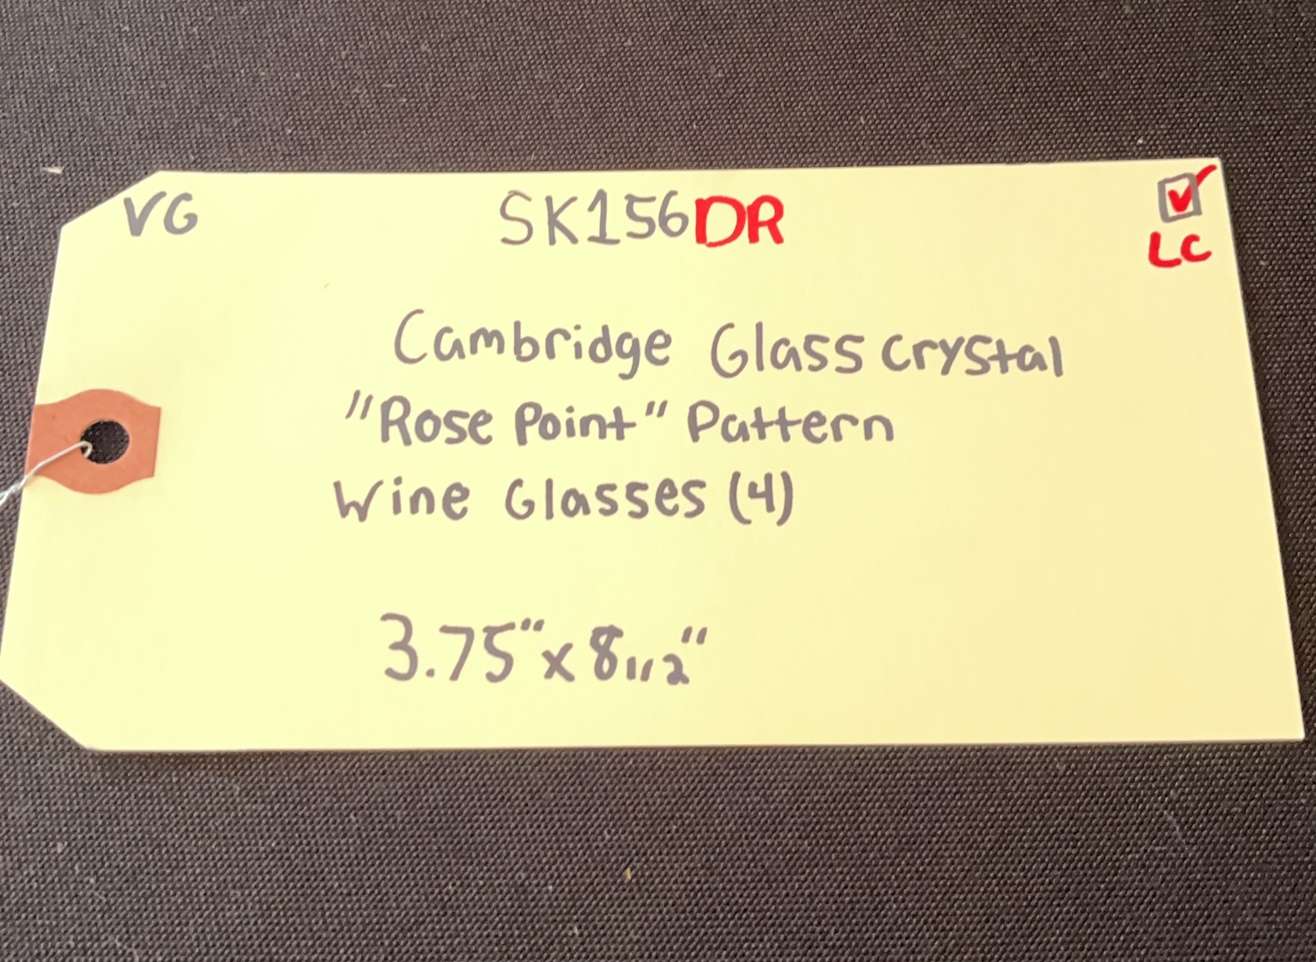 VG SK156DR ☑
LC
Cambridge Glass Crystal
"Rose Point" Pattern
Wine Glasses (4)
3.75" x 8 1/2"